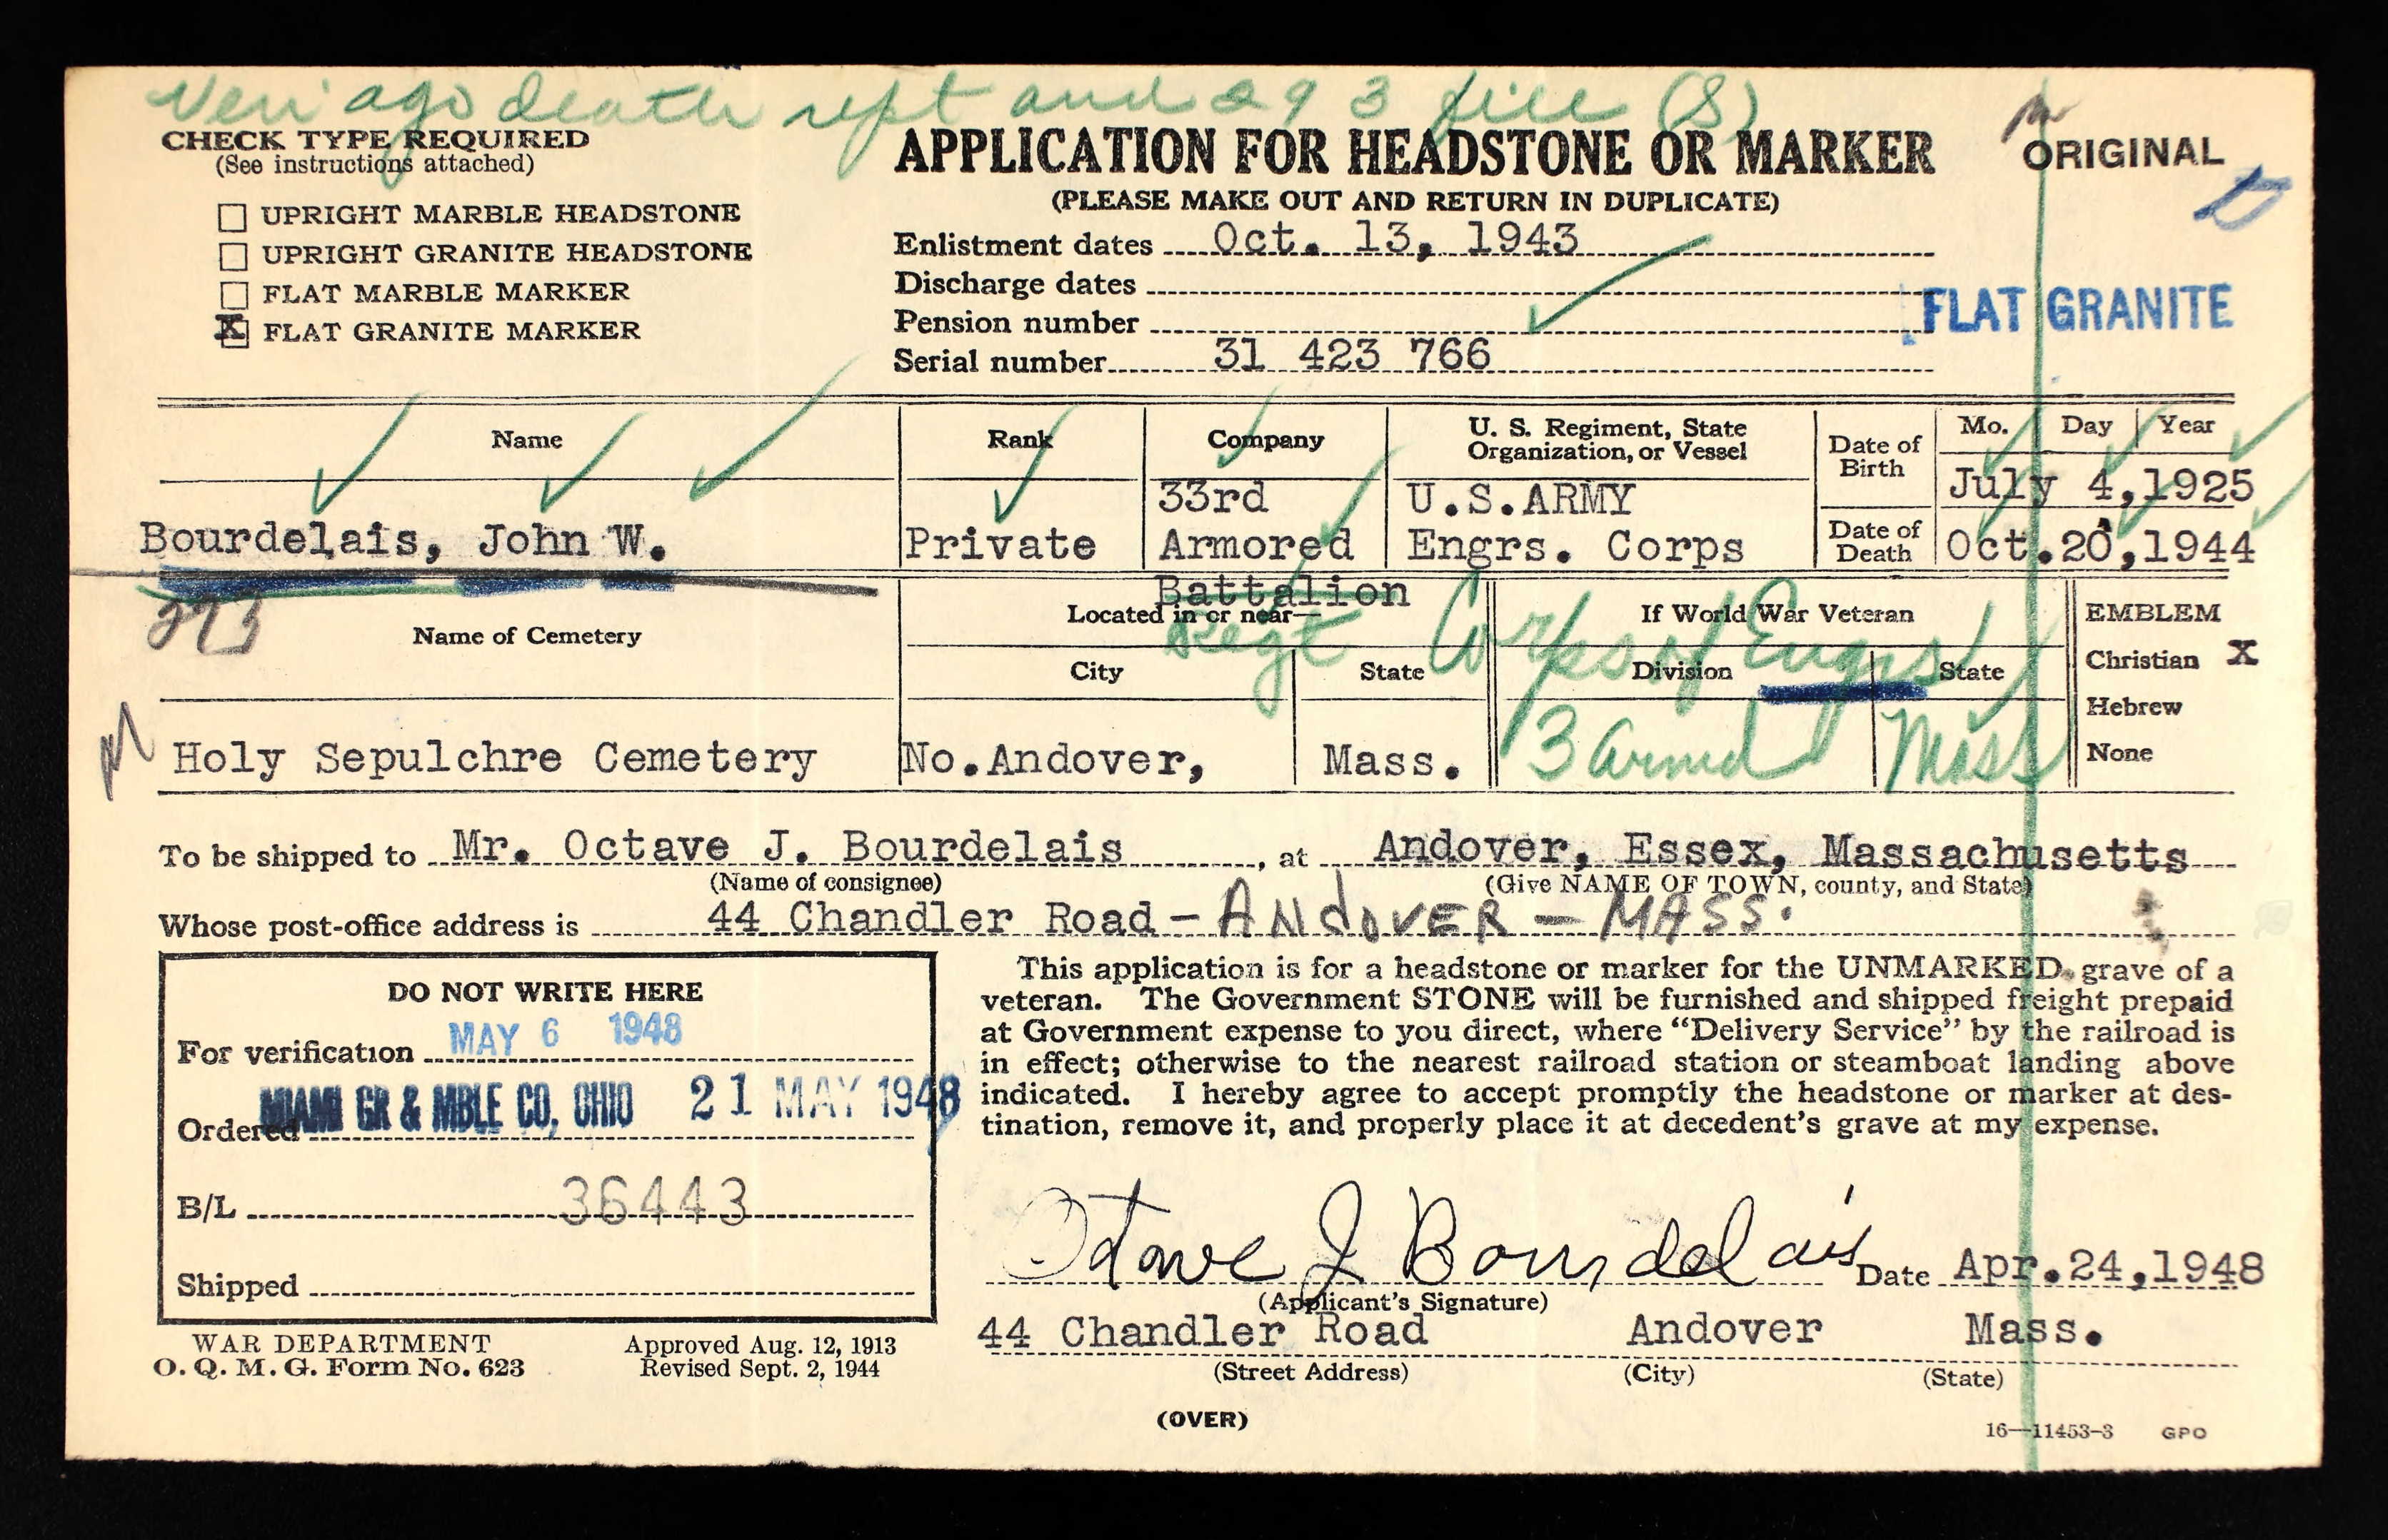 Veri ago death rept and 293 file (S)
CHECK TYPE REQUIRED
(See instructions attached)
UPRIGHT MARBLE HEADSTONE
UPRIGHT GRANITE HEADSTONE
FLAT MARBLE MARKER
X FLAT GRANITE MARKER
APPLICATION FOR HEADSTONE OR MARKER
(PLEASE MAKE OUT AND RETURN IN DUPLICATE)
ORIGINAL
Enlistment dates Oct. 13, 1943
Discharge dates
Pension number
Serial number 31 423 766
FLAT GRANITE
Name
Rank
Company
U. S. Regiment, State
Organization, or Vessel
Date of
Birth
Mo. Day Year
July 4, 1925
Bourdelais, John W.
Private
33rd
Armored
Battalion
U.S.ARMY
Engrs. Corps
Date of
Death
Oct.20,1944
Regt Corps of Engrs
293
Name of Cemetery
Located in or near—
City State
If World War Veteran
Division State
EMBLEM
Christian X
Hebrew
None
Holy Sepulchre Cemetery
No.Andover, Mass.
3 Armd Mass
To be shipped to Mr. Octave J. Bourdelais, at Andover, Essex, Massachusetts
(Name of consignee) (Give NAME OF TOWN, county, and State)
Whose post-office address is 44 Chandler Road - ANdOVER - MASS.
DO NOT WRITE HERE
For verification MAY 6 1948
Ordered MIAMI GR & MBLE CO, OHIO 21 MAY 1948
B/L 36443
Shipped
This application is for a headstone or marker for the UNMARKED grave of a
veteran. The Government STONE will be furnished and shipped freight prepaid
at Government expense to you direct, where “Delivery Service” by the railroad is
in effect; otherwise to the nearest railroad station or steamboat landing above
indicated. I hereby agree to accept promptly the headstone or marker at des-
tination, remove it, and properly place it at decedent's grave at my expense.
Octave J Bourdelais Date Apr.24,1948
(Applicant's Signature)
44 Chandler Road Andover Mass.
(Street Address) (City) (State)
WAR DEPARTMENT
O. Q. M. G. Form No. 623
Approved Aug. 12, 1913
Revised Sept. 2, 1944
(OVER)
16—11453-3 GPO